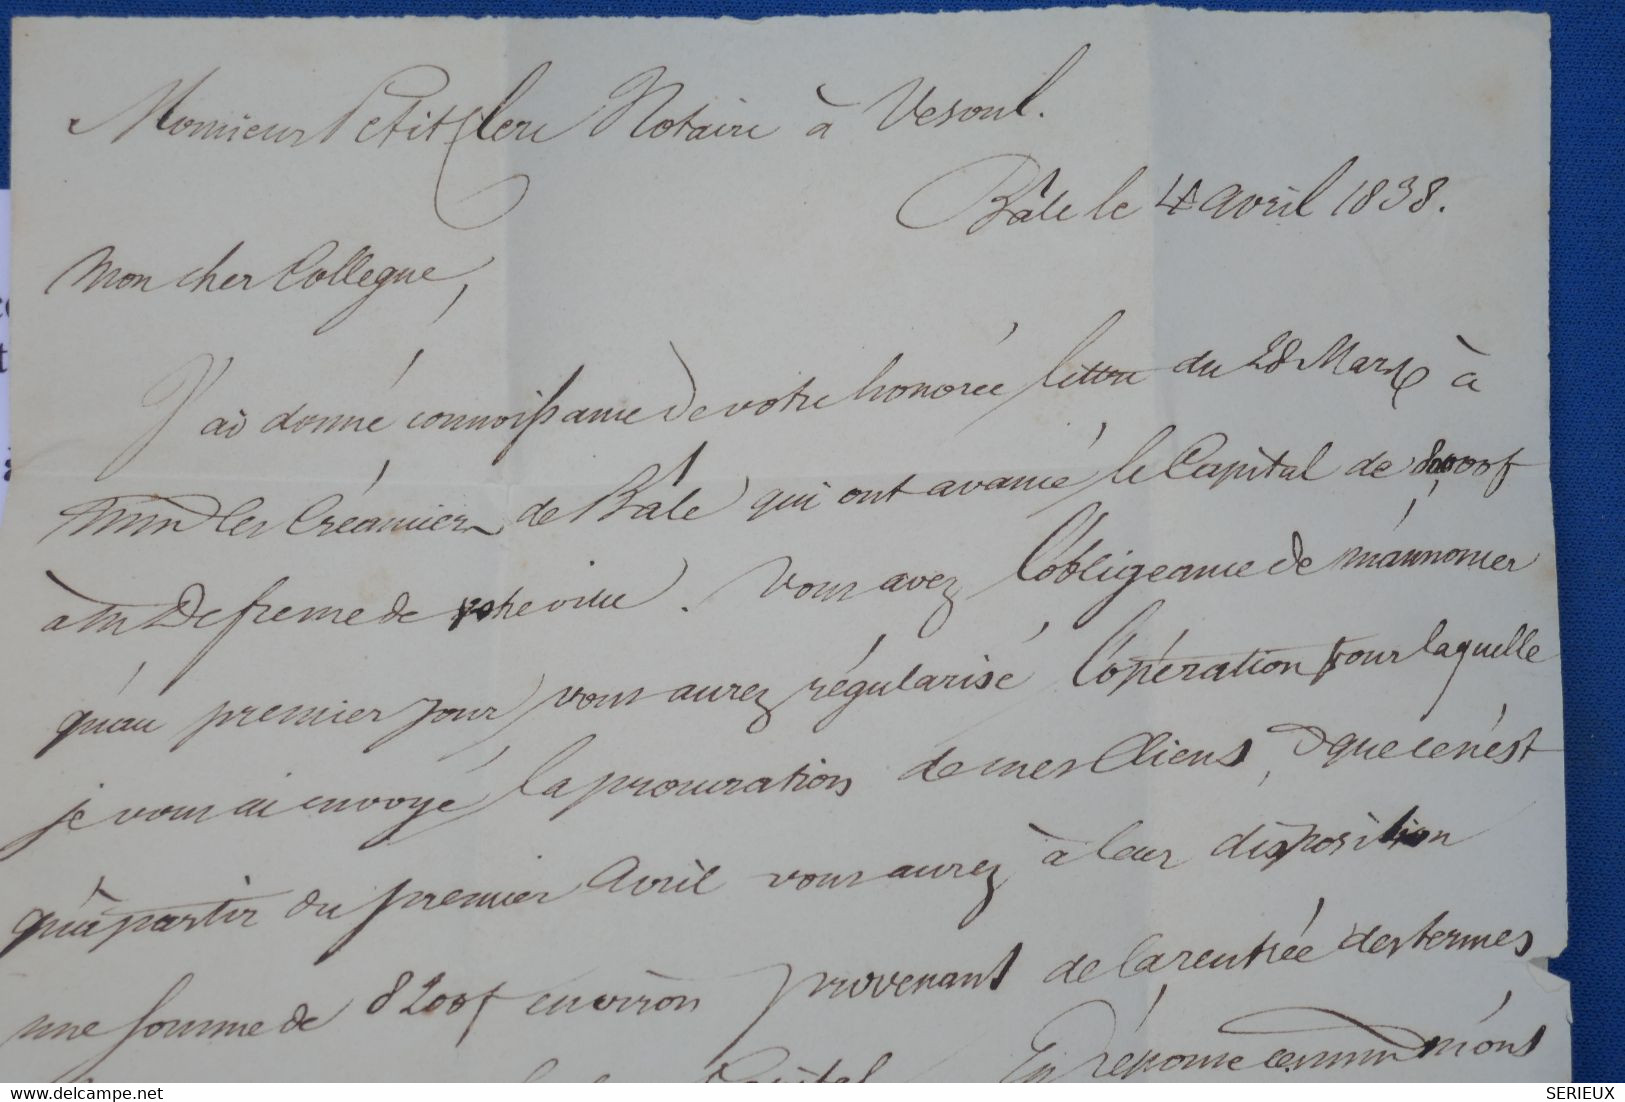 Monsieur Petitclerc Notaire à Vesoul.
Bâle le 4 avril 1838.
Mon cher Collegue,
J'ai donné connoissance de votre honorée lettre du 28 Mars à
les Créanciers de Bâle qui ont avancé le Capital de
à de votre ville. Vous avez l'obligeance de m'annoncer
qu'au premier jour vous aurez régularisé l'opération pour laquelle
je vous ai envoyé la procuration de mes Cliens, & que ce n'est
qu'à partir du premier Avril vous aurez à leur disposition
une somme de 8200f environ provenant de la rentrée des termes
Capital En réponse ces m'ont
delcampe.net
SERIEUX